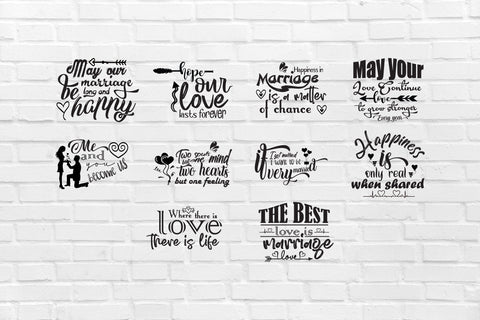 May our
marriage
be long and
happy
hope
our
love
lasts forever
Happiness in
Marriage
is a matter
of chance
MAY YOUR
Love Continue
love
to grow stronger
Every year
Me
and
you
become us
Two souls
but one mind
two hearts
but one feeling
If I get married
I want to be
very married
Happiness
is
only real
when shared
Where there is
love
there is life
THE BEST
love is
marriage
love